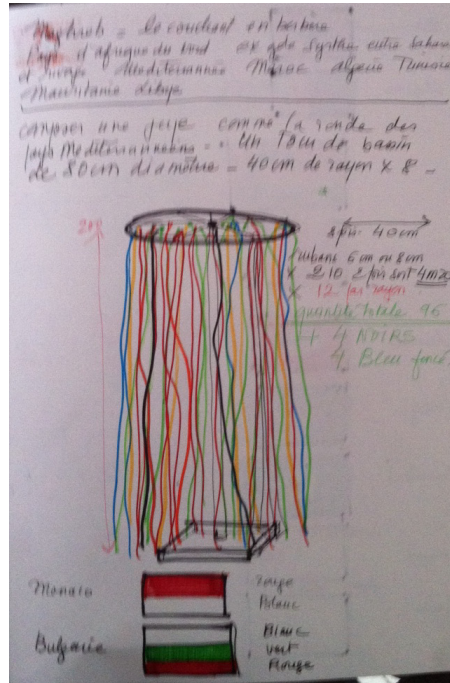 Maghreb = le couchant en berbère
Pays d'afrique du Nord entre Sahara
et Europe Méditerranée Maroc algérie Tunisie
Mauritanie Libye
composer une jupe comme la ronde des
pays Méditerranéens = Un Tour de bassin
de 80cm diamètre = 40cm de rayon x 8 =
210
40cm
rubans 6 cm ou 8cm
x 210 2 fois soit 4m20
x 12 par rayon
quantité totale 96
+ 4 NOIRS
4 Bleu foncé
Monaco
rouge
Blanc
Bulgarie
Blanc
vert
Rouge